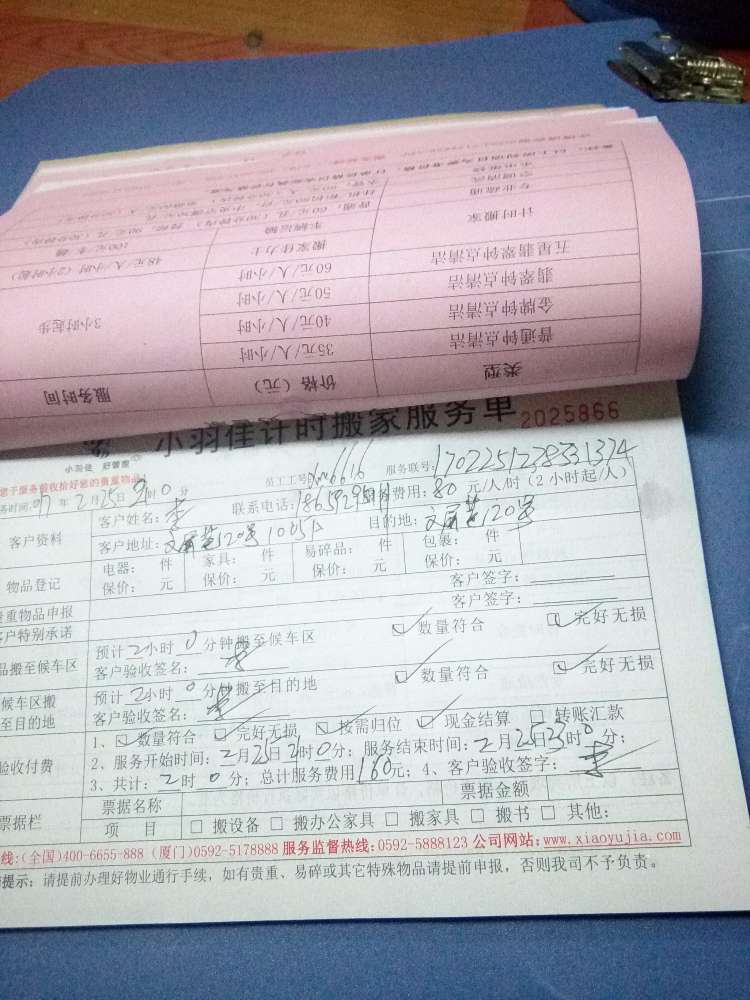 普通:60元/瓦(30分钟内)
类型 价格(元) 服务时间
普通钟点清洁 35元/人/小时 3小时起步
金牌钟点清洁 40元/人/小时
翡翠钟点清洁 50元/人/小时
五星翡翠钟点清洁 60元/人/小时
计时搬家 搬家佳力士 48元/人/小时(2小时起)
车辆运输 100元/车/趟
专业疏通
空调清洗
小羽佳计时搬家服务单 2025866
小羽佳 好管家
于服务前收拾好您的贵重物品! 员工工号: 6616 服务联号: 1702251238331374
务时间:17年2月25日21时0分 联系电话: 服务费用:80元/人/时(2小时起/人)
客户资料 客户姓名:李
客户地址:文屏巷120号1005 目的地:文屏巷120号
物品登记 电器: 件 家具: 件 易碎品: 件 包装: 件
保价: 元 保价: 元 保价: 元 保价: 元
贵重物品申报 客户签字:
客户特别承诺 客户签字:
品搬至候车区 预计2小时0分钟搬至候车区 ☑ 数量符合 ☑ 完好无损
客户验收签名:李
候车区搬至目的地 预计2小时0分钟搬至目的地 ☑ 数量符合 ☑ 完好无损
客户验收签名:李
验收付费 1、☑ 数量符合 ☑ 完好无损 ☑ 按需归位 ☑ 现金结算 □ 转账汇款
2、服务开始时间:2月25日21时0分;服务结束时间:2月25日23时0分;
3、共计:2时0分;总计服务费用160元;4、客户验收签字:李
票据栏 票据名称 票据金额
项 目 □ 搬设备 □ 搬办公家具 □ 搬家具 □ 搬书 □ 其他:
线:(全国)400-6655-888 (厦门)0592-5178888 服务监督热线:0592-5888123 公司网站:www.xiaoyujia.com
提示:请提前办理好物业通行手续,如有贵重、易碎或其它特殊物品请提前申报,否则我司不予负责。